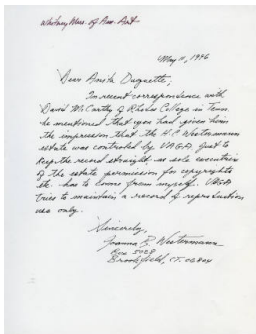 Whitney Mus. of Am. Art
May 11, 1996
Dear Anita Duquette,
In recent correspondence with
David McCarthy of Rhodes College in Tenn.
he mentioned that you had given him
the impression that the H.C. Westermann
estate was controled by VAGA. Just to
keep the record straight, as sole executrix
of the estate permission for copyrights
etc. has to come from myself. VAGA
tries to maintain a record of reproduction
use only.
Sincerely,
Joanna B. Westermann
Box 5028
Brookfield, CT. 06804